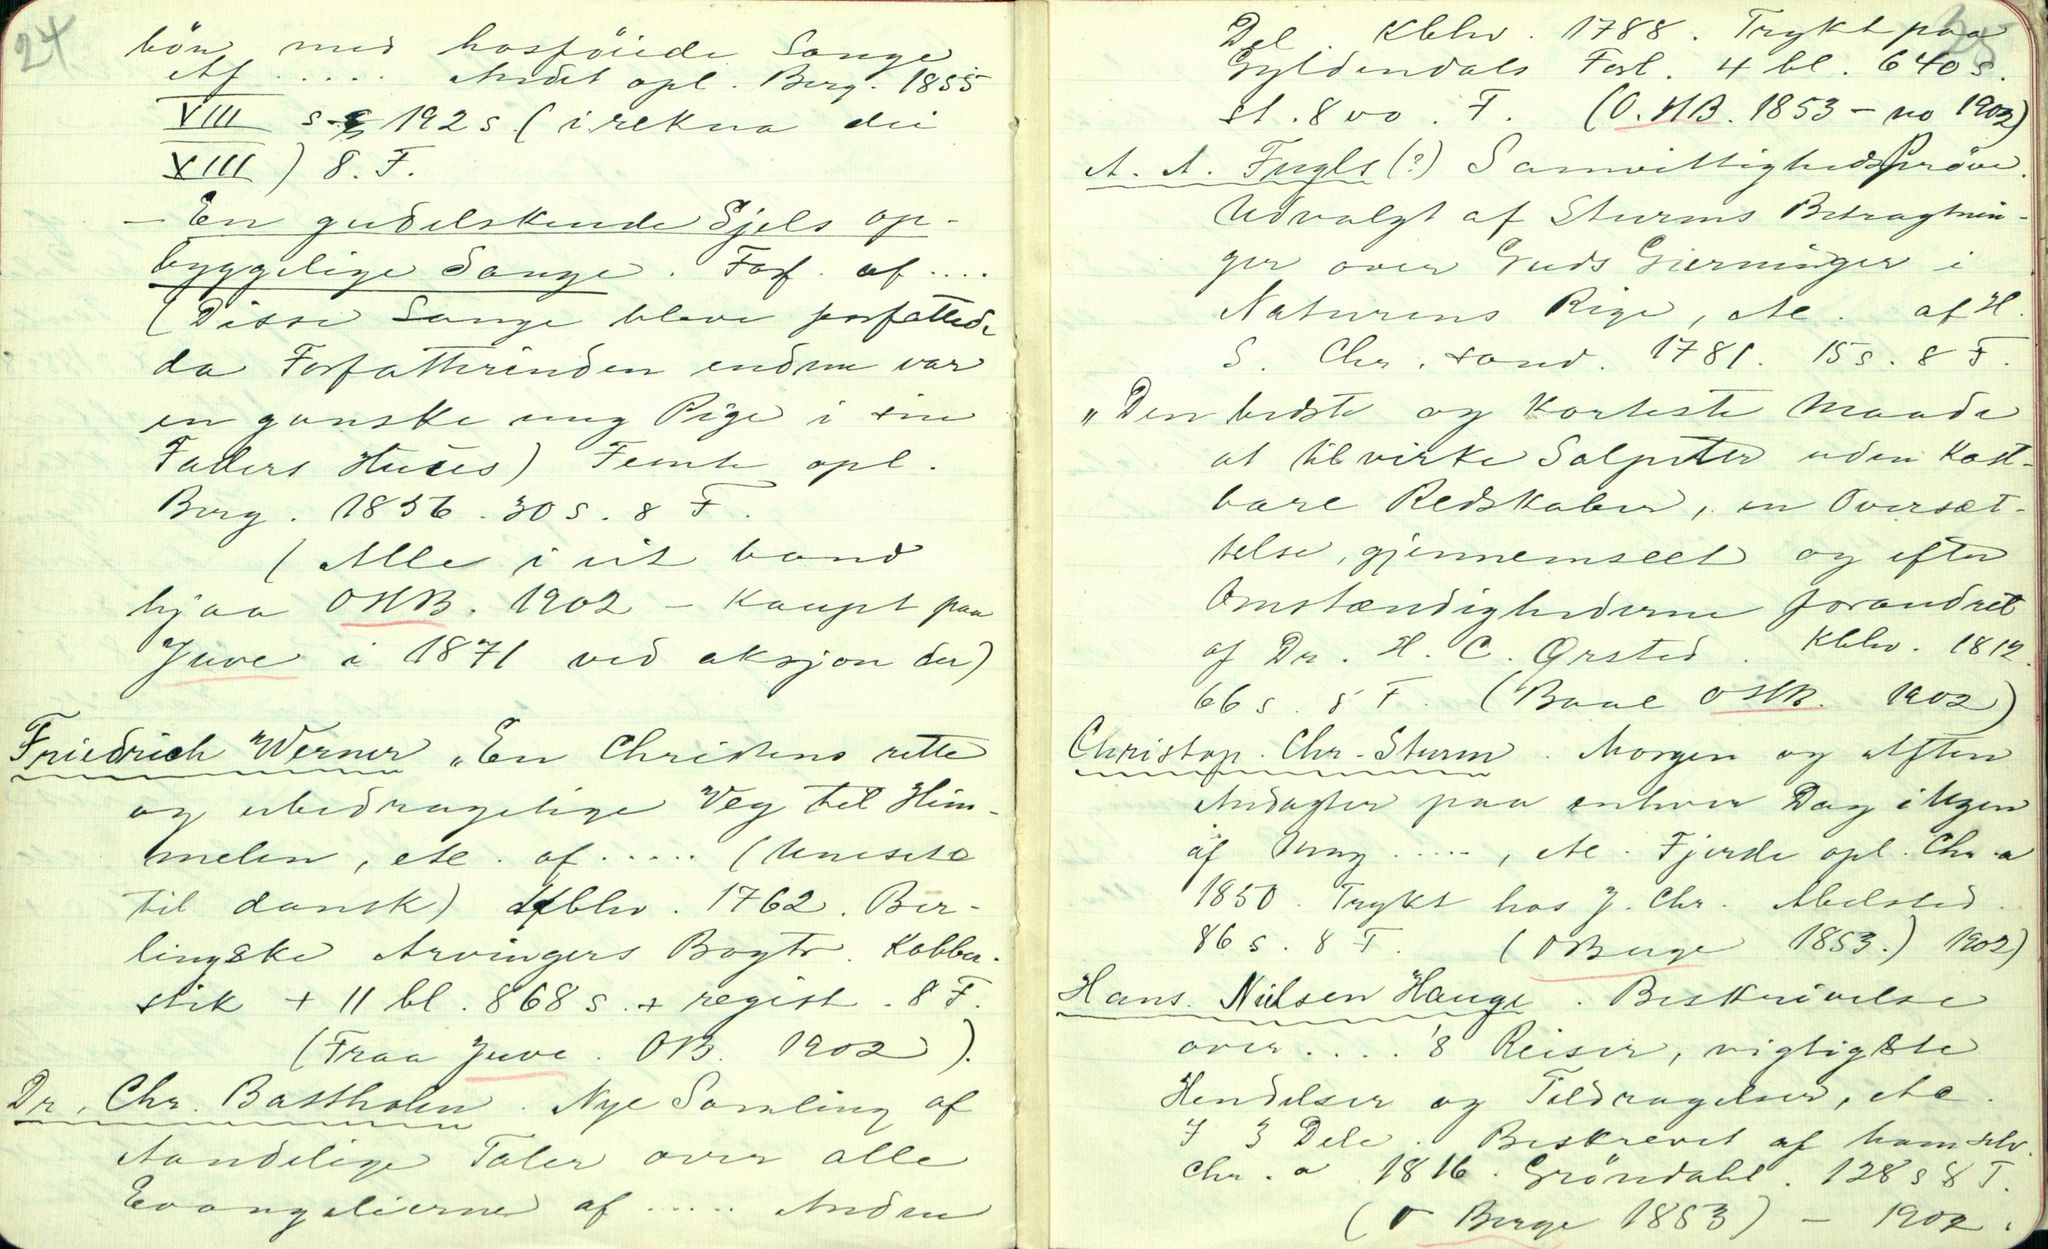 24
bön med hosföiede Sange
Af ..... Andet opl. Berg. 1855
VIII s 192 s. (i rekna dei
XIII) 8. F.
— En gudelskende Sjels op-
byggelige Sange. Forf. af ....
(Disse Sange bleve forfattede
da Forfatterinden endnu var
en ganske ung Pige i sin
Faders Huus) Femte opl.
Berg. 1856. 30 s. 8 F.
(Alle i eit band
hjaa OHB. 1902 – kaupt paa
Juve i 1871 ved aksjon der)
Friedrich Werner „En Christens rette
og ubedragelige Veg til Him-
melen, etc. af ..... (Umsett
til dansk) Kbhv. 1762. Ber-
lingske Arvingers Bogtr. Kobber-
stik + 11 bl. 868 s. + regist. 8 F.
(Fraa Juve. OB. 1902).
Dr. Chr. Bastholm. Nye Samling af
Aandelige Taler over alle
Evangelierne af ..... Anden
25
Del. Kbhv. 1788. Trykt paa
Gyldendals Forl. 4 bl. 640 s.
st. 8vo. F. (O.HB. 1853 – no 1902)
A. A. Fugls (?) Samvittigheds Pröve.
Udvalgt af Sturms Betragtnin-
ger over Guds Gierninger i
Naturens Rige, etc. af H.
S. Chr. sand. 1781. 15 s. 8 F.
„Den bedste og korteste Maade
at tilvirke Salpeter uden kost-
bare Redskaber, en Oversæt-
telse, gjennemseet og efter
Omstændighederne forandret
af Dr. H. C. Ørsted. Kbhv. 1812.
66 s. 8 F. (Baae OHB. 1902)
Christop. Chr. Sturm. Morgen og Aften
Andagter paa enhver Dag i Ugen
af ....., etc. Fjerde opl. Chr.a
1850. Trykt hos J. Chr. Abelsted.
86 s. 8 F. (O Berge 1853.) 1902)
Hans Nielsen Hauge. Beskrivelse
over ....'s Reiser, vigtigste
Hendelser og Tildragelser, etc.
I 3 Dele. Beskrevet af ham selv.
Chr.a 1816. Gröndahl. 128 s 8 F.
(O Berge 1853) – 1902.